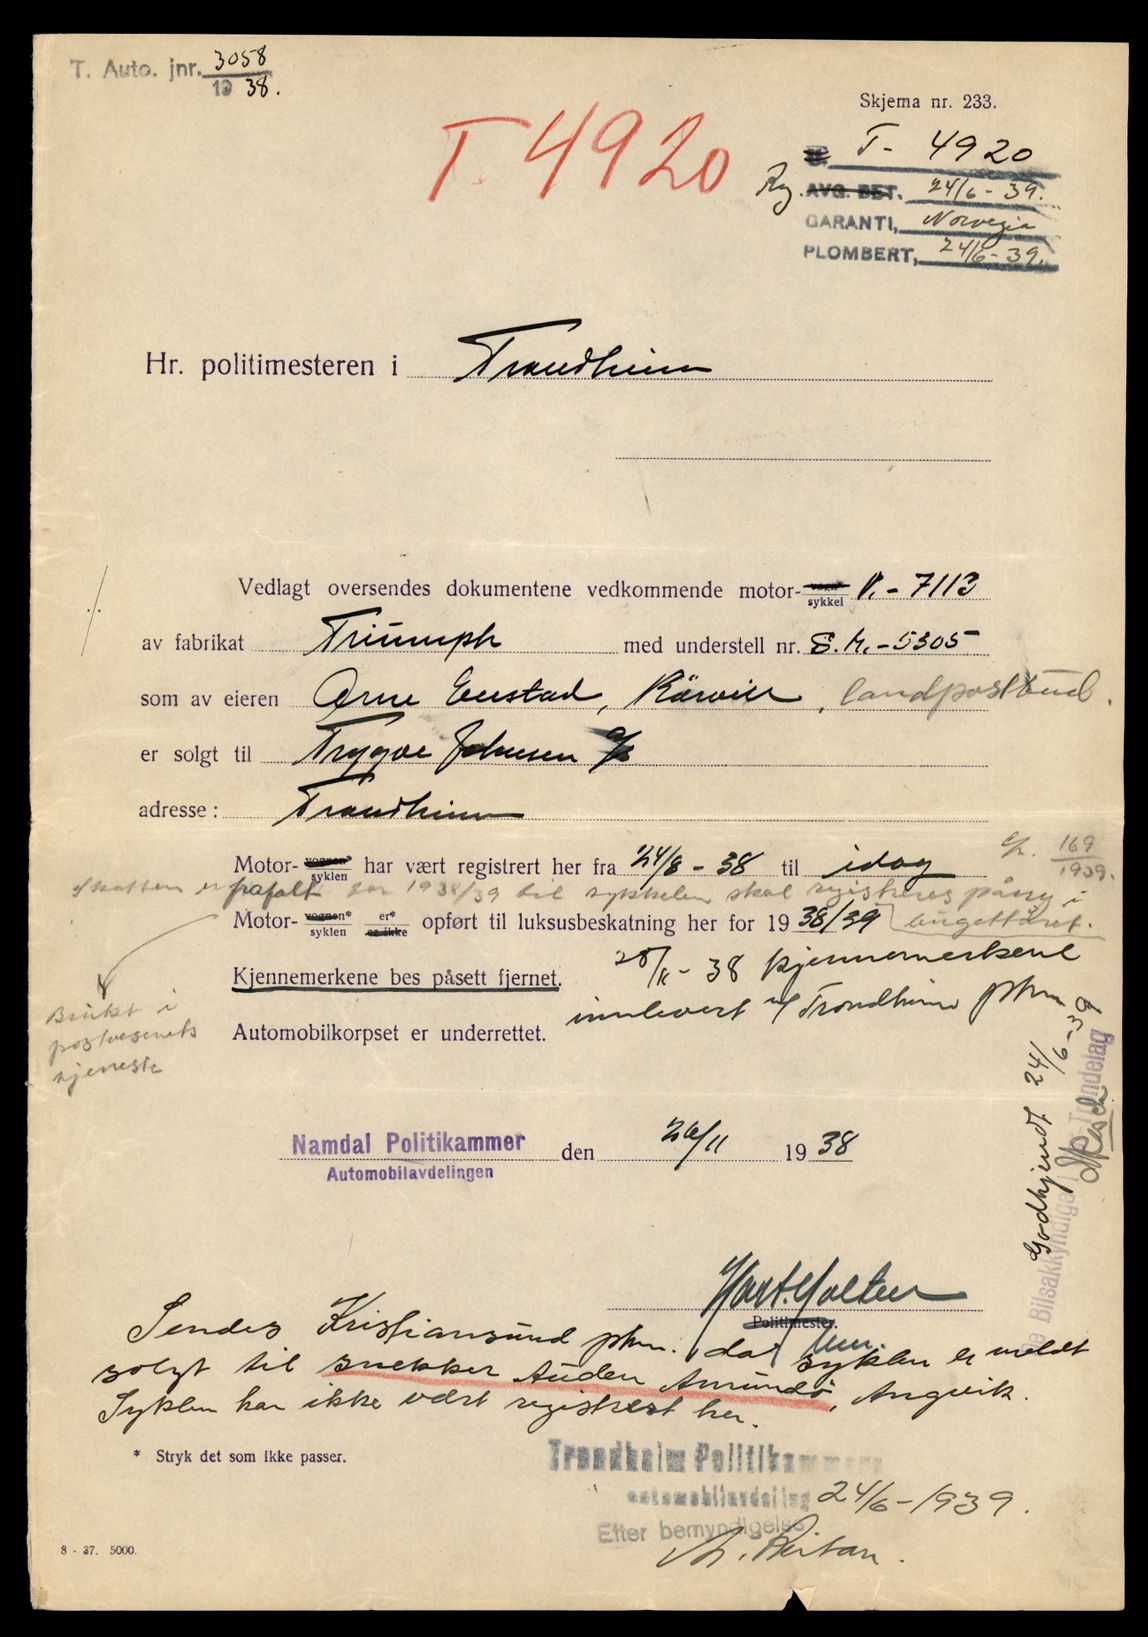 T. Auto. jnr. 3058
19 38.
Skjema nr. 233.
T. 4920
T- 4920
Reg. AVG. BET. 24/6-39.
GARANTI, Norvegia
PLOMBERT, 24/6-39.
Hr. politimesteren i Trondheim
Vedlagt oversendes dokumentene vedkommende motor- vogn* sykkel V.-7113
av fabrikat Triumph med understell nr. S.M.-5305
som av eieren Arne , landpostbud.
er solgt til Trygve Johnsen
adresse: Trondheim
Motor- vognen* syklen har vært registrert her fra 24/8-38 til idag
169
1939.
Skatten er frafalt for 1938/39 til sykkelen skal registreres påny i
Motor- vognen* syklen er* er ikke opført til luksusbeskatning her for 19 38/39
Kjennemerkene bes påsett fjernet. 28/11-38 kjennemerkene
innlevert Trondheim pkm
Automobilkorpset er underrettet.
Brukt i
postvesenets
tjeneste
Godkjendt 24/6-39
De Bilsakkyndige i Trøndelag
Namdal Politikammer den 26/11 19 38
Automobilavdelingen
Politimester.
Sendes Kristiansund pkm. da syklen er meldt
solgt til snekker Auden Amundö, Angvik.
Syklen har ikke vært registrert her.
* Stryk det som ikke passer.
Trondheim Politikammer
automobilavdeling 24/6-1939.
Efter bemyndigelse
8 - 37. 5000.